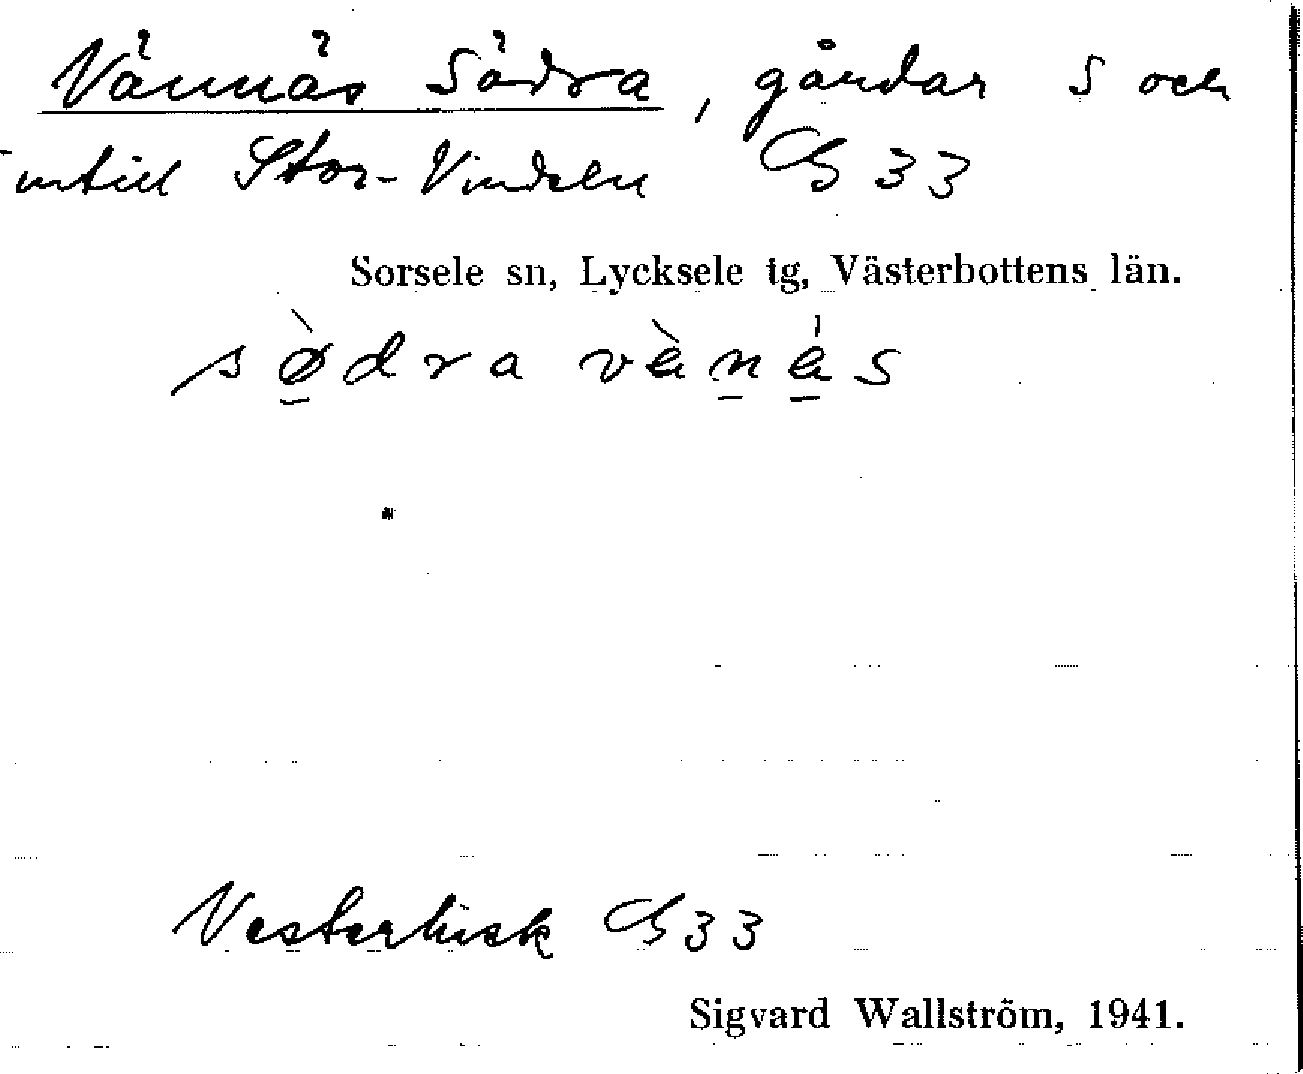 Vännäs Södra, gårdar S och
intill Stor-Vindeln G 33
Sorsele sn, Lycksele tg, Västerbottens län.
sø̀dra vænæs
G 33
Sigvard Wallström, 1941.